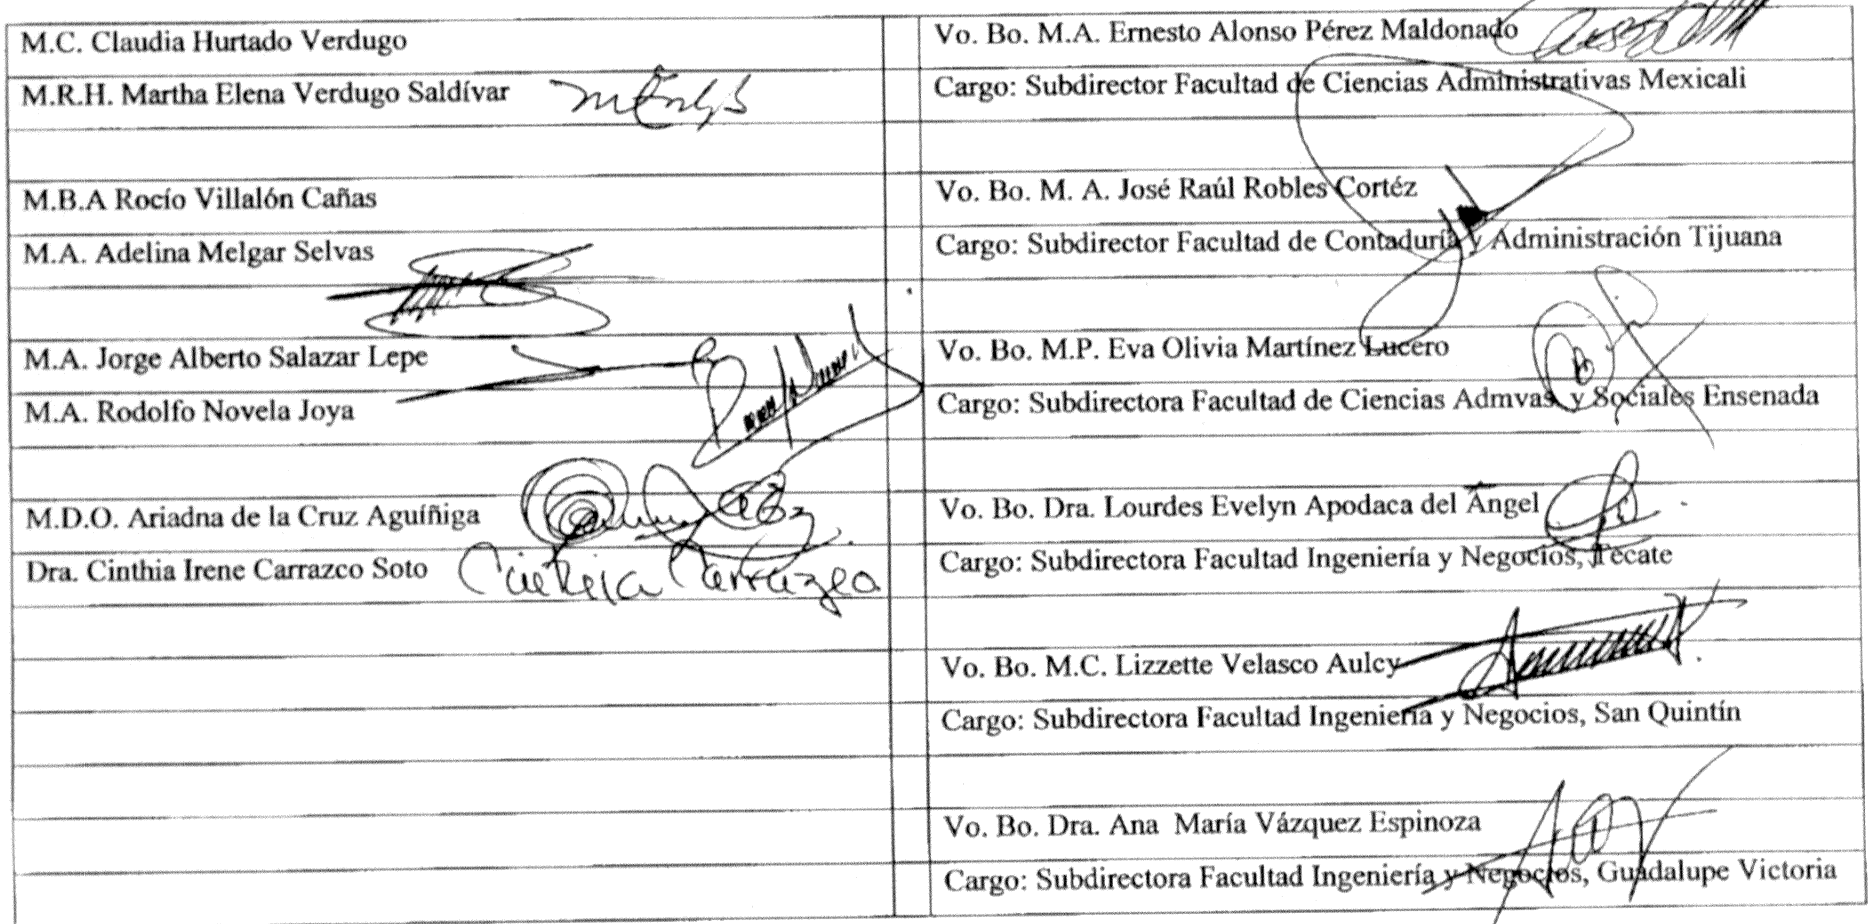 M.C. Claudia Hurtado Verdugo
M.R.H. Martha Elena Verdugo Saldívar
M.B.A Rocío Villalón Cañas
M.A. Adelina Melgar Selvas
M.A. Jorge Alberto Salazar Lepe
M.A. Rodolfo Novela Joya
M.D.O. Ariadna de la Cruz Aguíñiga
Dra. Cinthia Irene Carrazco Soto
Vo. Bo. M.A. Ernesto Alonso Pérez Maldonado
Cargo: Subdirector Facultad de Ciencias Administrativas Mexicali
Vo. Bo. M. A. José Raúl Robles Cortéz
Cargo: Subdirector Facultad de Contaduría y Administración Tijuana
Vo. Bo. M.P. Eva Olivia Martínez Lucero
Cargo: Subdirectora Facultad de Ciencias Admvas. y Sociales Ensenada
Vo. Bo. Dra. Lourdes Evelyn Apodaca del Ángel
Cargo: Subdirectora Facultad Ingeniería y Negocios, Tecate
Vo. Bo. M.C. Lizzette Velasco Aulcy
Cargo: Subdirectora Facultad Ingeniería y Negocios, San Quintín
Vo. Bo. Dra. Ana María Vázquez Espinoza
Cargo: Subdirectora Facultad Ingeniería y Negocios, Guadalupe Victoria